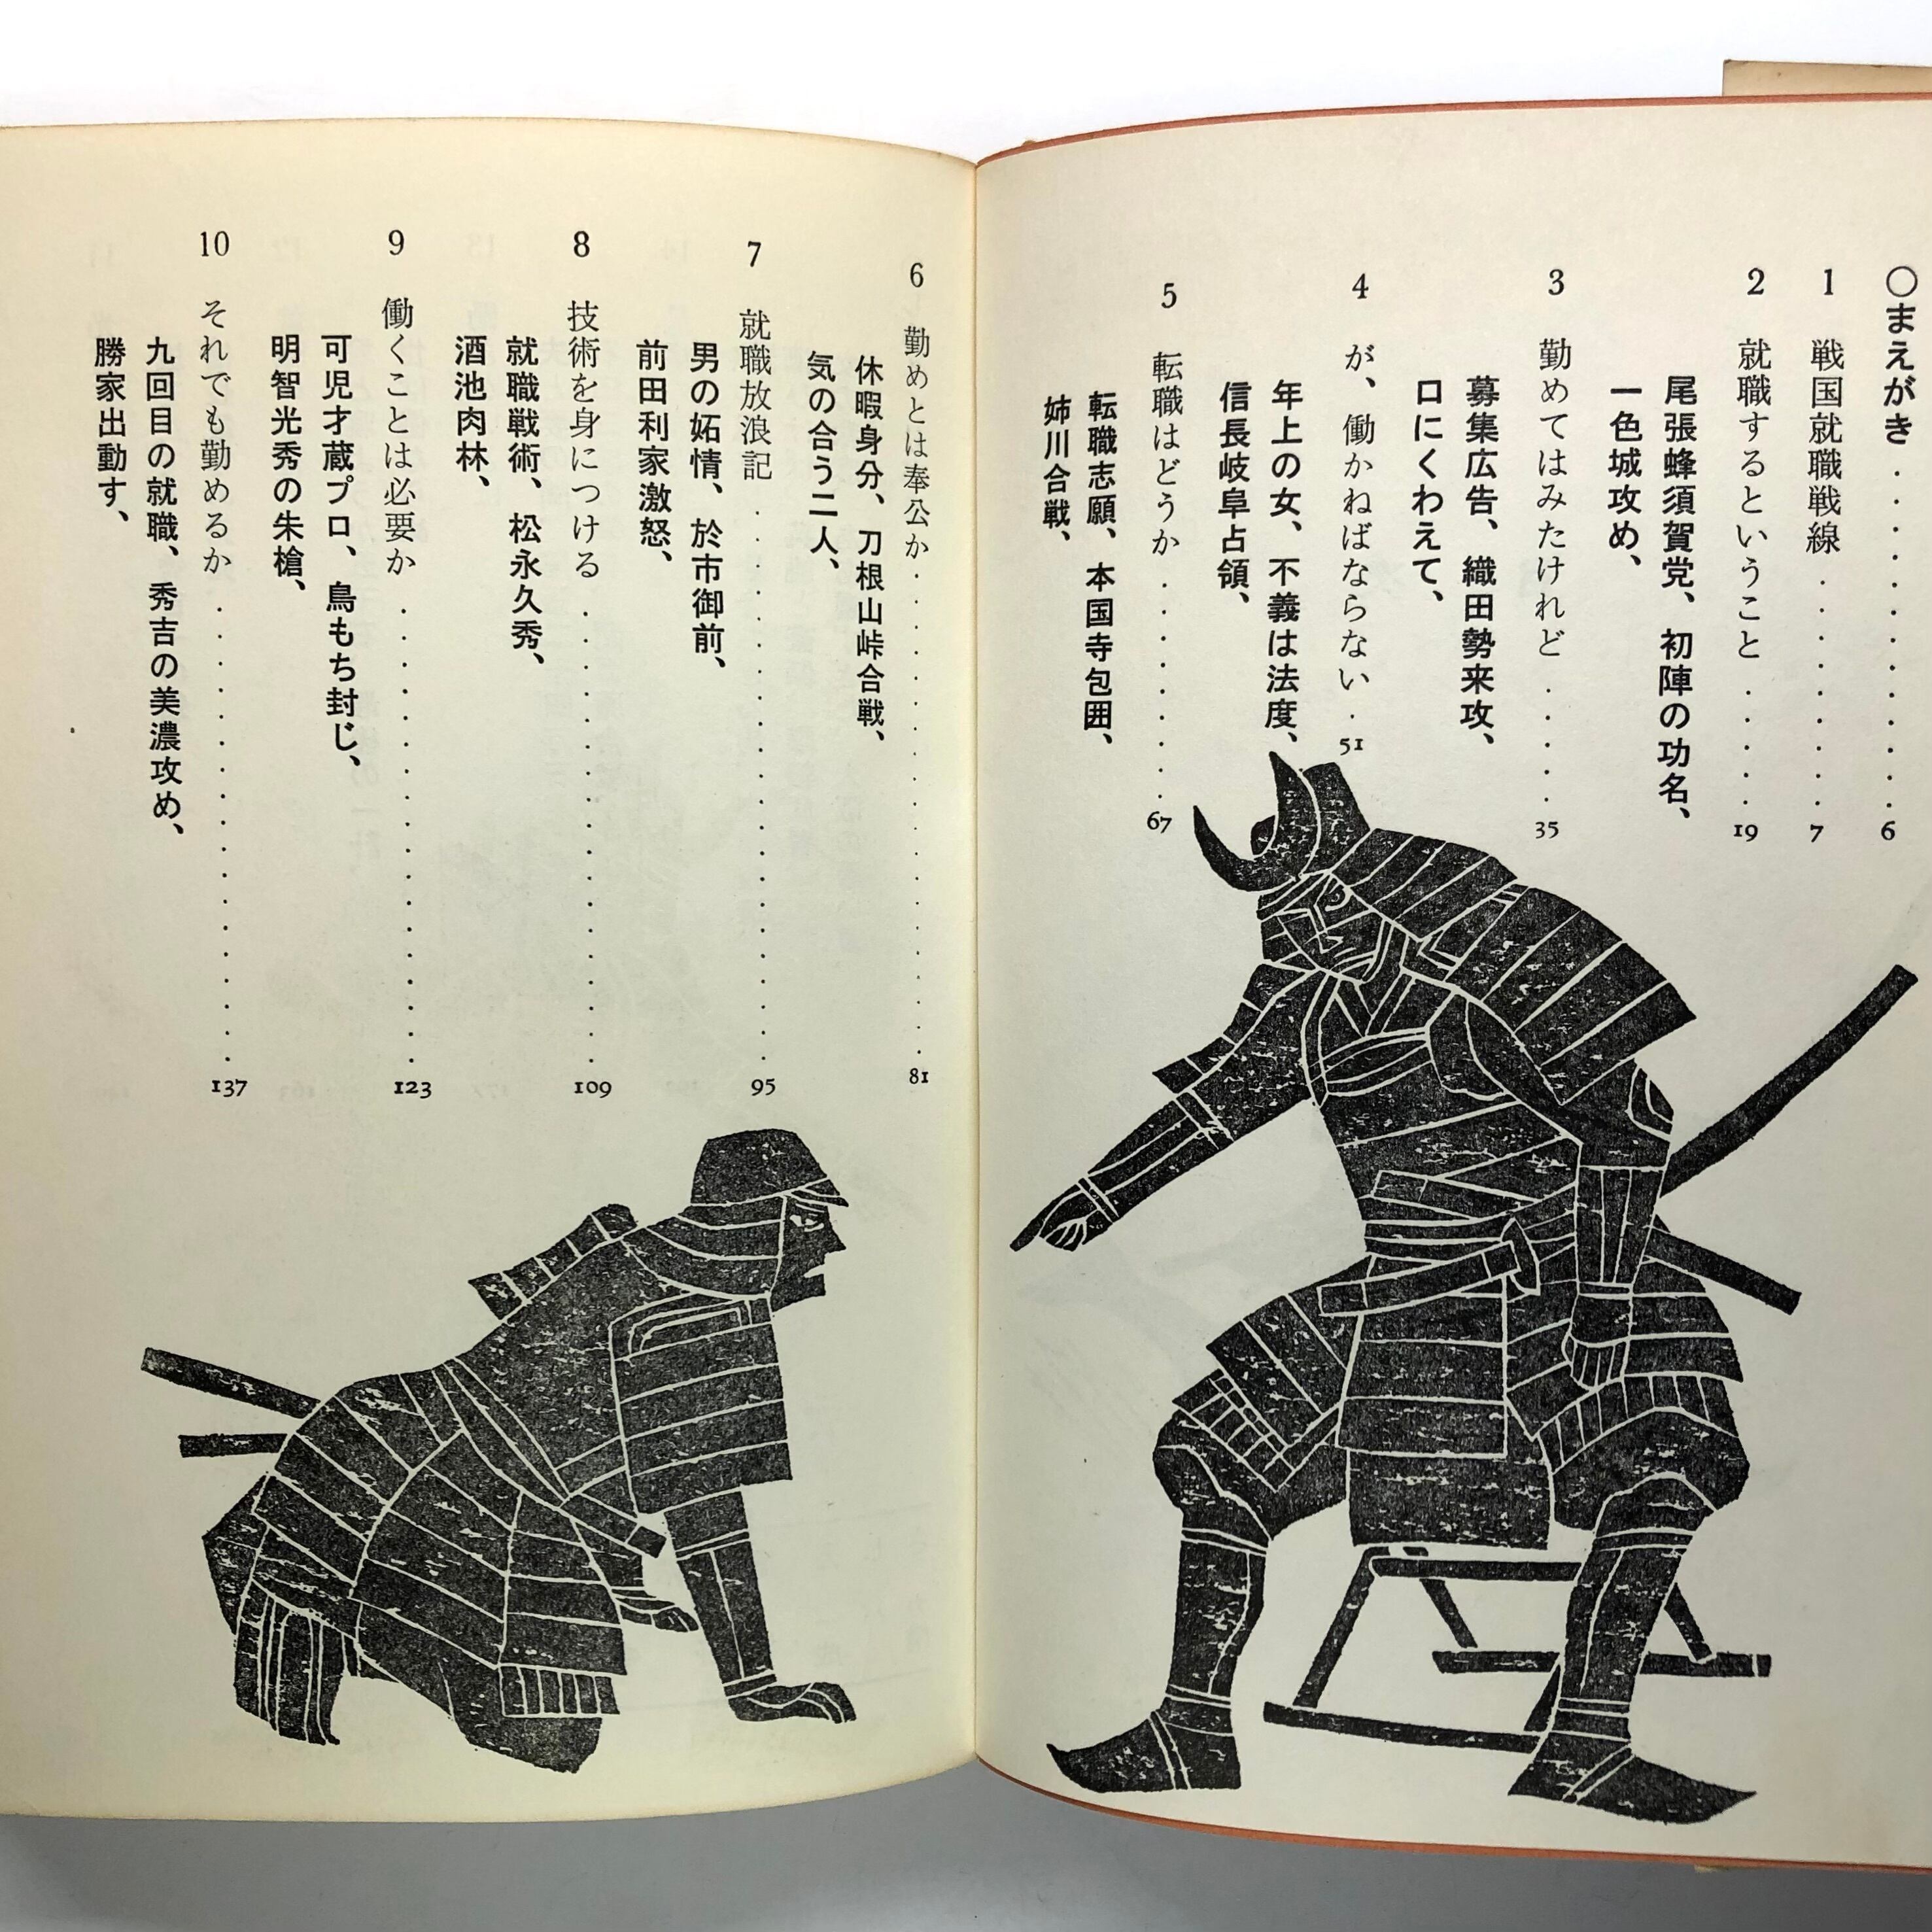 ○まえがき・・・・・・・・・・・・・6
1 戦国就職戦線・・・・・・・・・7
2 就職するということ・・・・・19
尾張蜂須賀党、初陣の功名、
一色城攻め、
3 勤めてはみたけれど・・・・・35
募集広告、織田勢来攻、
口にくわえて、
4 が、働かねばならない・51
年上の女、不義は法度、
信長岐阜占領、
5 転職はどうか・・・・・・・・・67
転職志願、本国寺包囲、
姉川合戦、
6 勤めとは奉公か・・・・・・・・・・・・・・・・・・・81
休暇身分、刀根山峠合戦、
気の合う二人、
7 就職放浪記・・・・・・・・・・・・・・・・・・・・・95
男の妬情、於市御前、
前田利家激怒、
8 技術を身につける・・・・・・・・・・・・・・・・・・109
就職戦術、松永久秀、
酒池肉林、
9 働くことは必要か・・・・・・・・・・・・・・・・・・123
可児才蔵プロ、鳥もち封じ、
明智光秀の朱槍、
10 それでも勤めるか・・・・・・・・・・・・・・・・・・137
九回目の就職、秀吉の美濃攻め、
勝家出動す、